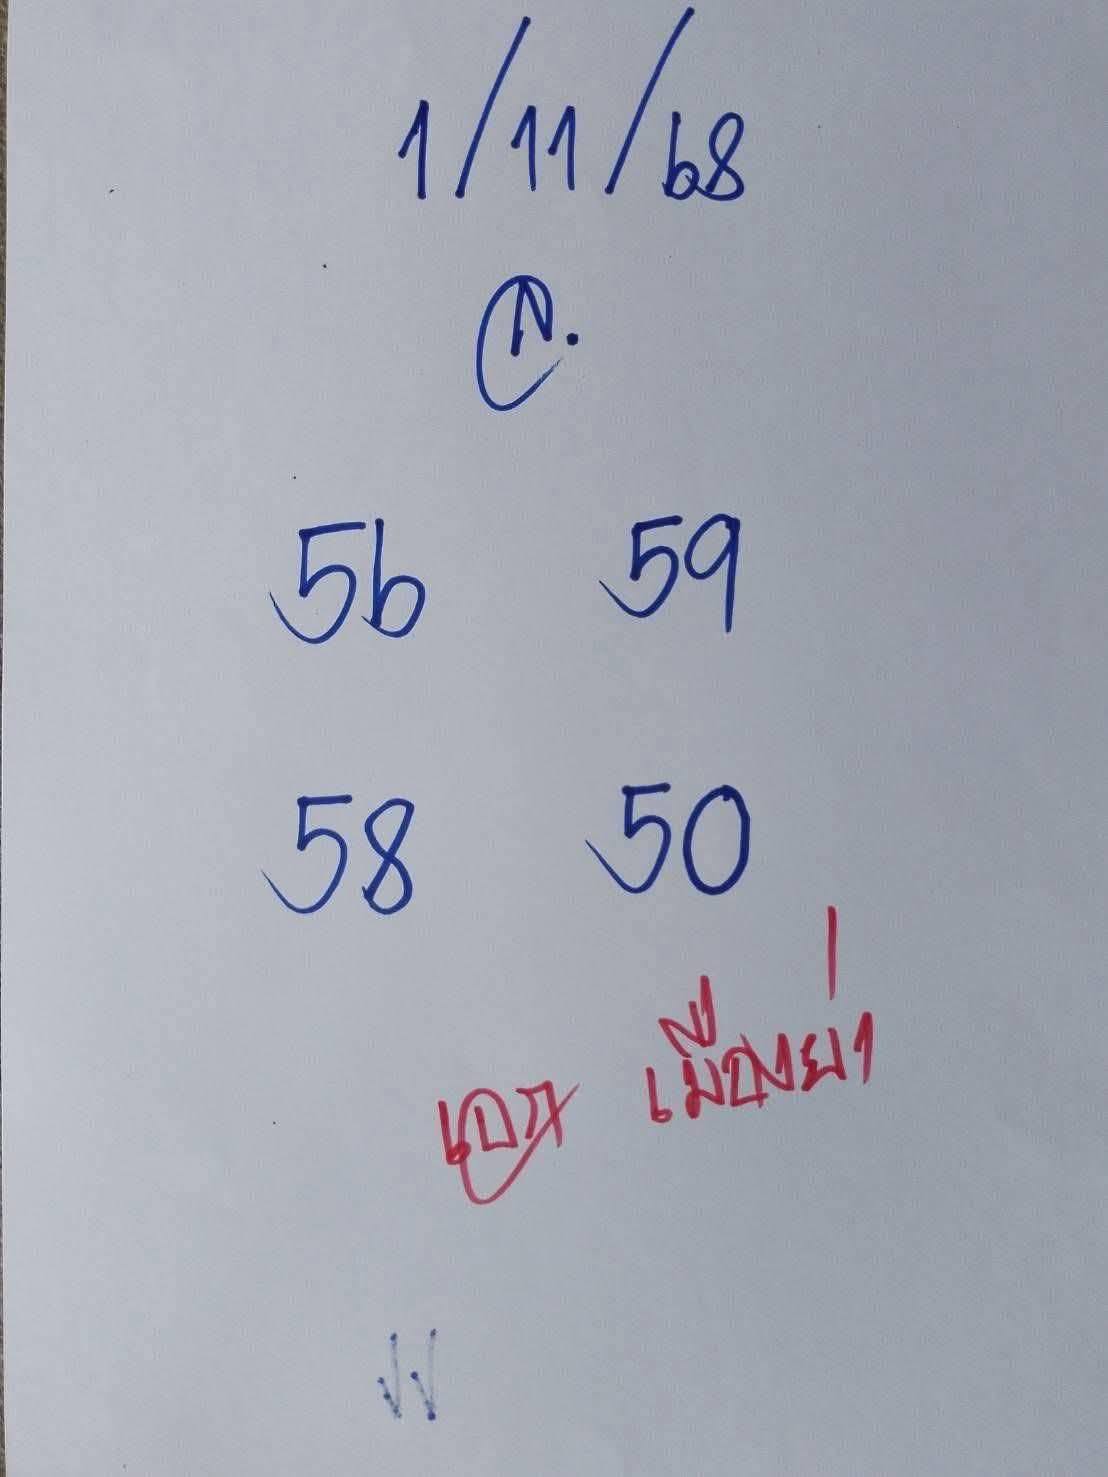 1/11/68
ล.
56 59
58 50
เอก เมืองย่า